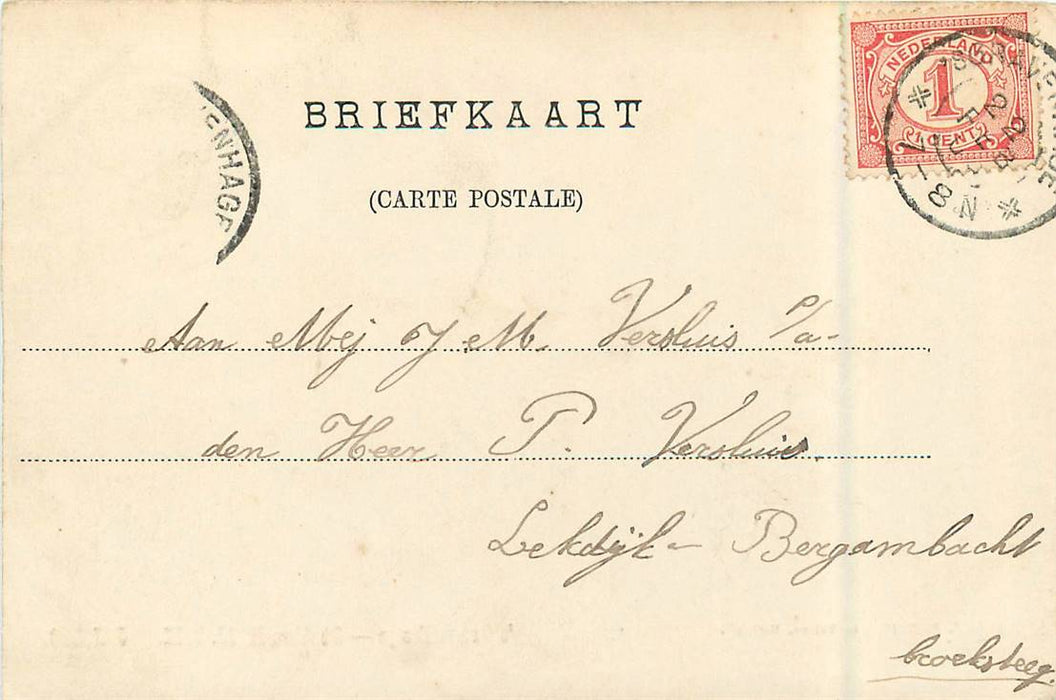 BRIEFKAART
(CARTE POSTALE)
NEDERLAND
1
1 CENT
ENHAGE
Aan Mej J M. Versluis p/a-
den Heer P. Versluis.
Lekdijk- Bergambacht
broeksteeg